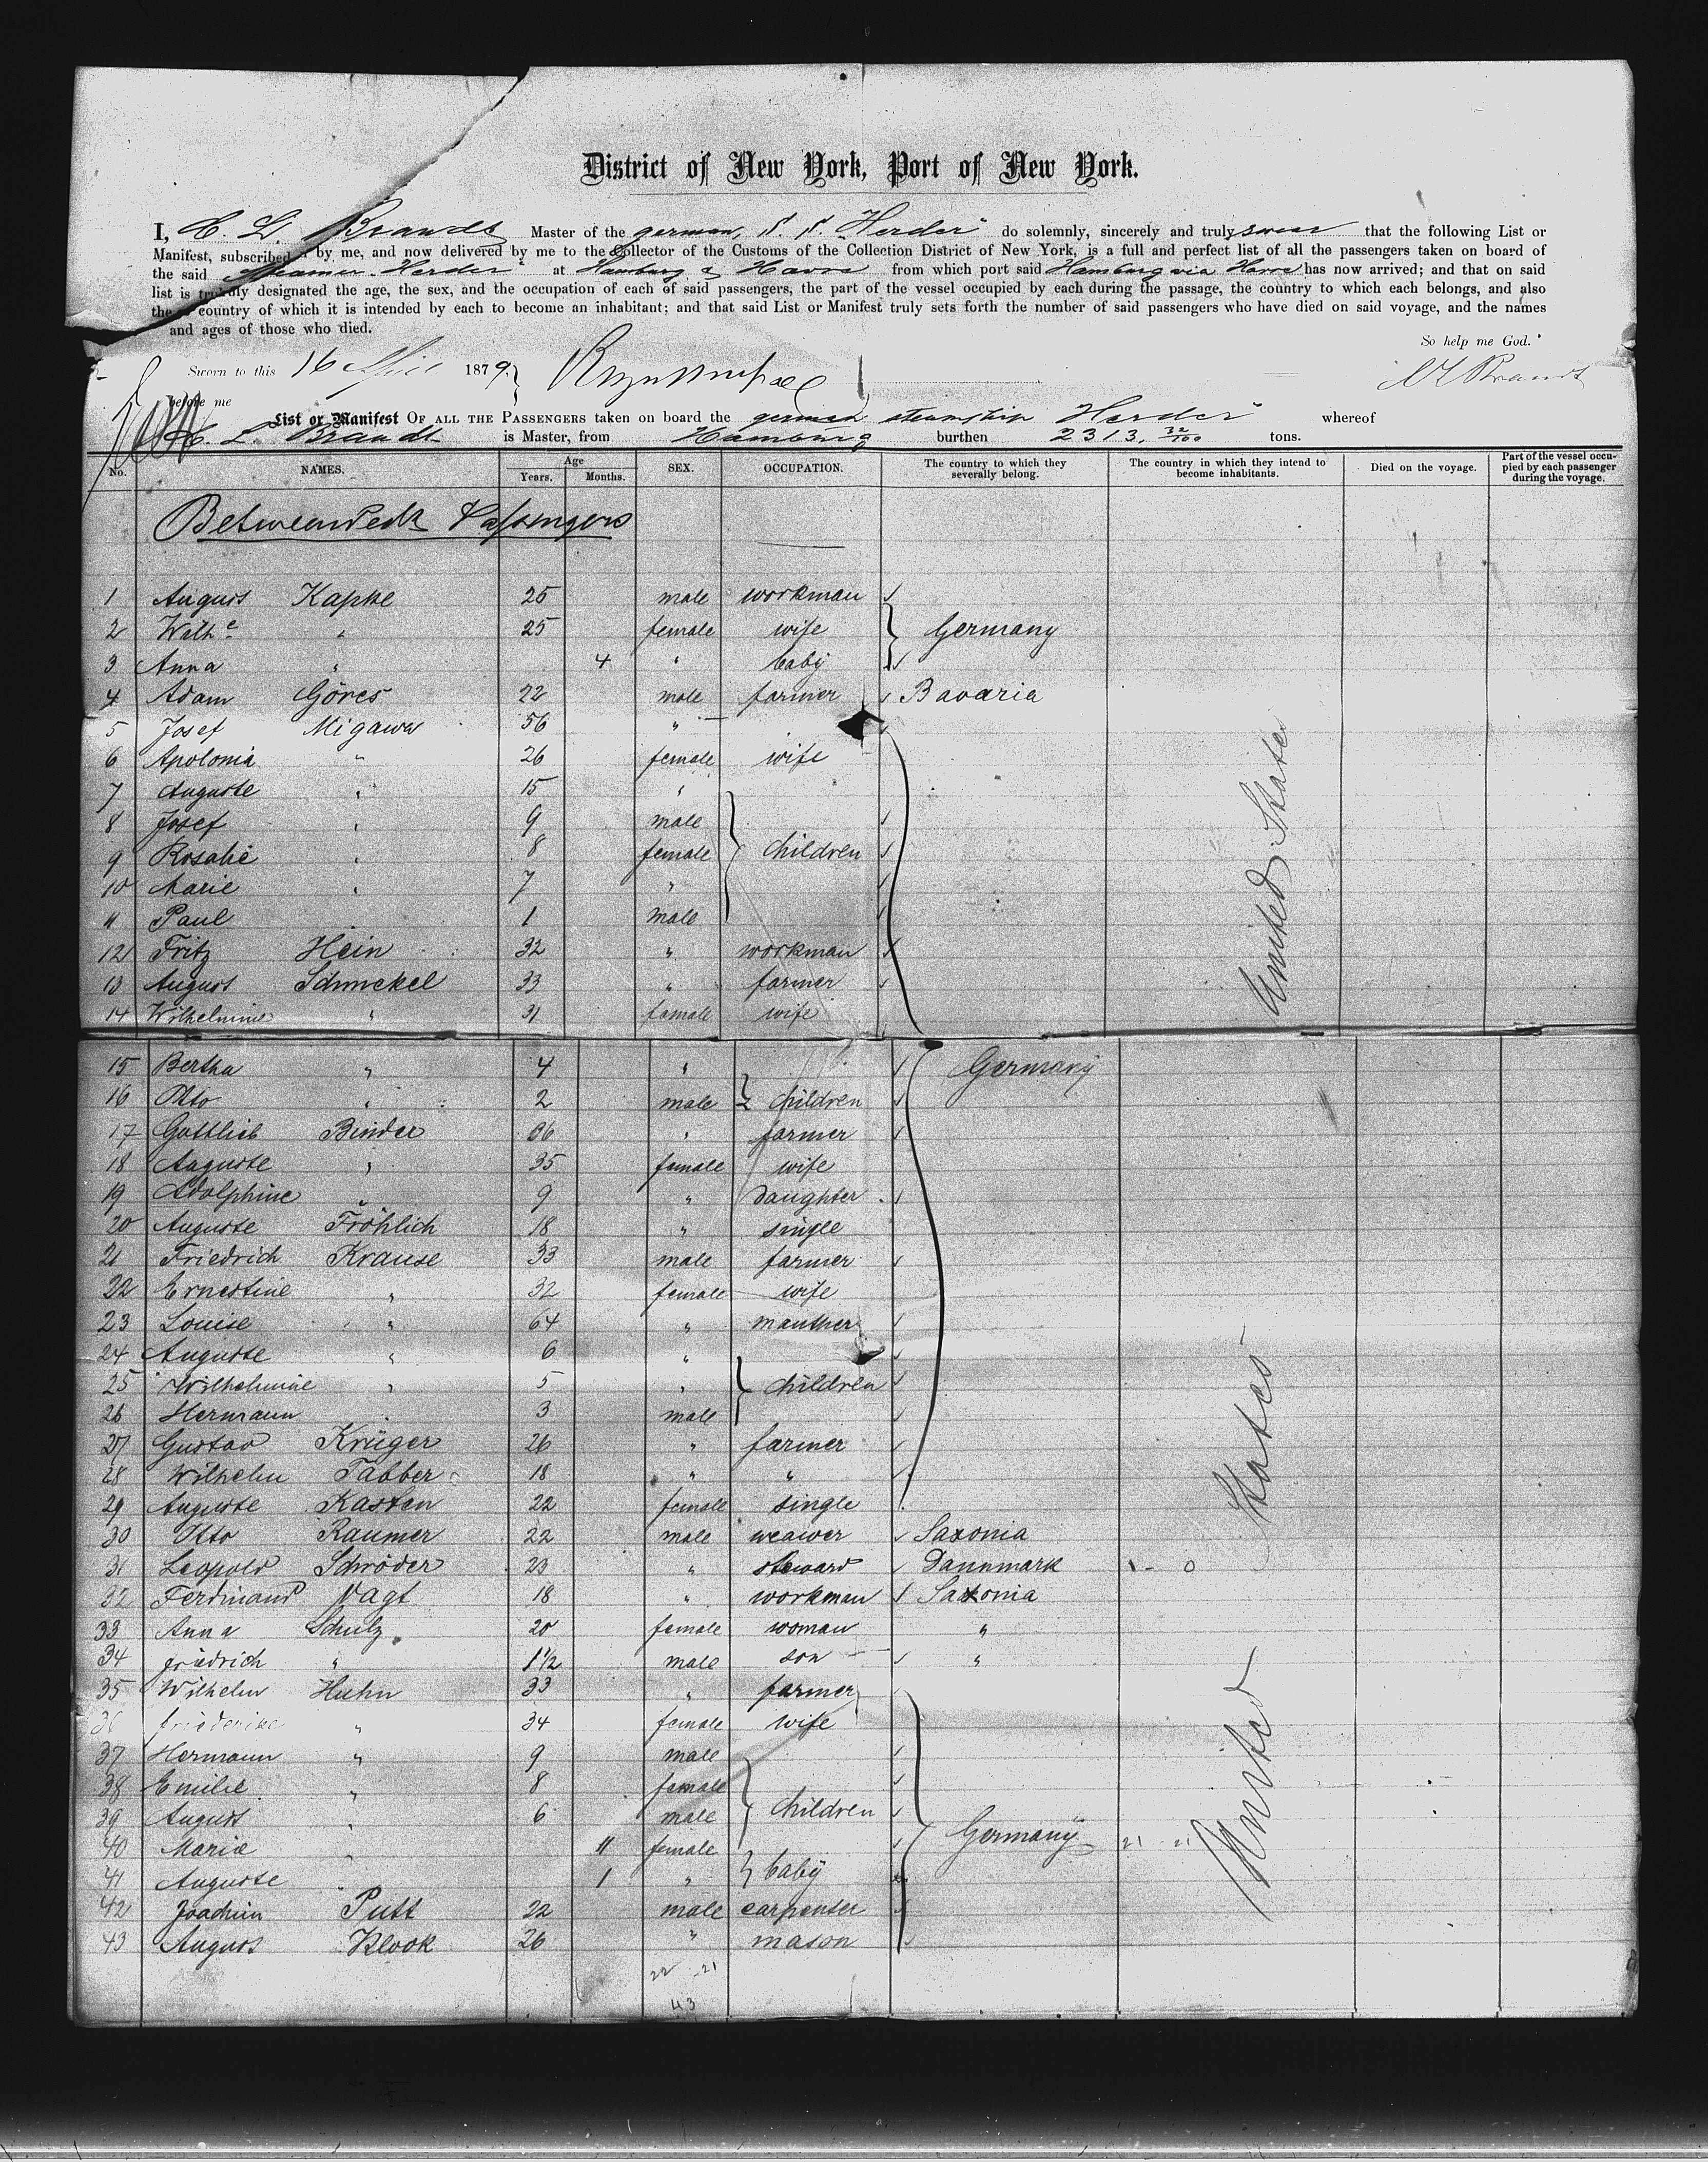 District of New York, Port of New York.
I, H. L. Brandt Master of the german, S. S. "Herder" do solemnly, sincerely and truly swear that the following List or
Manifest, subscribed by me, and now delivered by me to the Collector of the Customs of the Collection District of New York, is a full and perfect list of all the passengers taken on board of
the said Steamer Herder at Hamburg & Havre from which port said Hamburg via Havre has now arrived; and that on said
list is truly designated the age, the sex, and the occupation of each of said passengers, the part of the vessel occupied by each during the passage, the country to which each belongs, and also
the country of which it is intended by each to become an inhabitant; and that said List or Manifest truly sets forth the number of said passengers who have died on said voyage, and the names
and ages of those who died.
So help me God.
Sworn to this 16 April 1879 H L Brandt
before me
List or Manifest OF ALL THE PASSENGERS taken on board the german steamship Herder whereof
H. L. Brandt is Master, from Hamburg burthen 2313. 32/100 tons.
No. NAMES. Age Years. Months. SEX. OCCUPATION. The country to which they severally belong. The country in which they intend to become inhabitants. Died on the voyage. Part of the vessel occupied by each passenger during the voyage.
Betweendeck Passengers
1 August Kapke 25 male workman
2 Wilhe " 25 female wife Germany
3 Anna " 4 " baby
4 Adam Göres 22 male farmer Bavaria
5 Josef Migawa 56 "
6 Apolonia " 26 female wife
7 Auguste " 15 "
8 Josef " 9 male
9 Rosalie " 8 female children
10 Marie " 7 "
11 Paul 1 male
12 Fritz Hein 32 " workman
13 August Schmekel 33 " farmer
14 Wilhelmine " 31 female wife
United States
15 Bertha " 4 " Germany
16 Otto " 2 male children
17 Gottlieb Binder 36 " farmer
18 Auguste " 35 female wife
19 Adolphine " 9 " daughter
20 Auguste Fröhlich 18 " single
21 Friedrich Krause 33 male farmer
22 Ernestine " 32 female wife
23 Louise " 64 " mauther
24 Auguste " 6 "
25 Wilhelmine " 5 " children
26 Hermann " 3 male
27 Gustav Krüger 26 " farmer
28 Wilhelm Tabber 18 " "
29 Auguste Kasten 22 female single
30 Otto Raumer 22 male weawer Saxonia
31 Leopold Schröder 23 " steward Dannmark 1 - 0
32 Ferdinand Vagt 18 " workman Saxonia
33 Anna Schulz 20 female woman "
34 friedrich " 1 1/2 male son "
35 Wilhelm Huhn 33 " farmer
36 friederike " 34 female wife
37 Hermann " 9 male
38 Emilie " 8 female
39 August " 6 male children
40 Marie " 11 female Germany 21 21
41 Auguste " 1 " baby
42 Joachim Putt 22 male carpenter
43 August Klook 26 " mason
United States
22 - 21
43